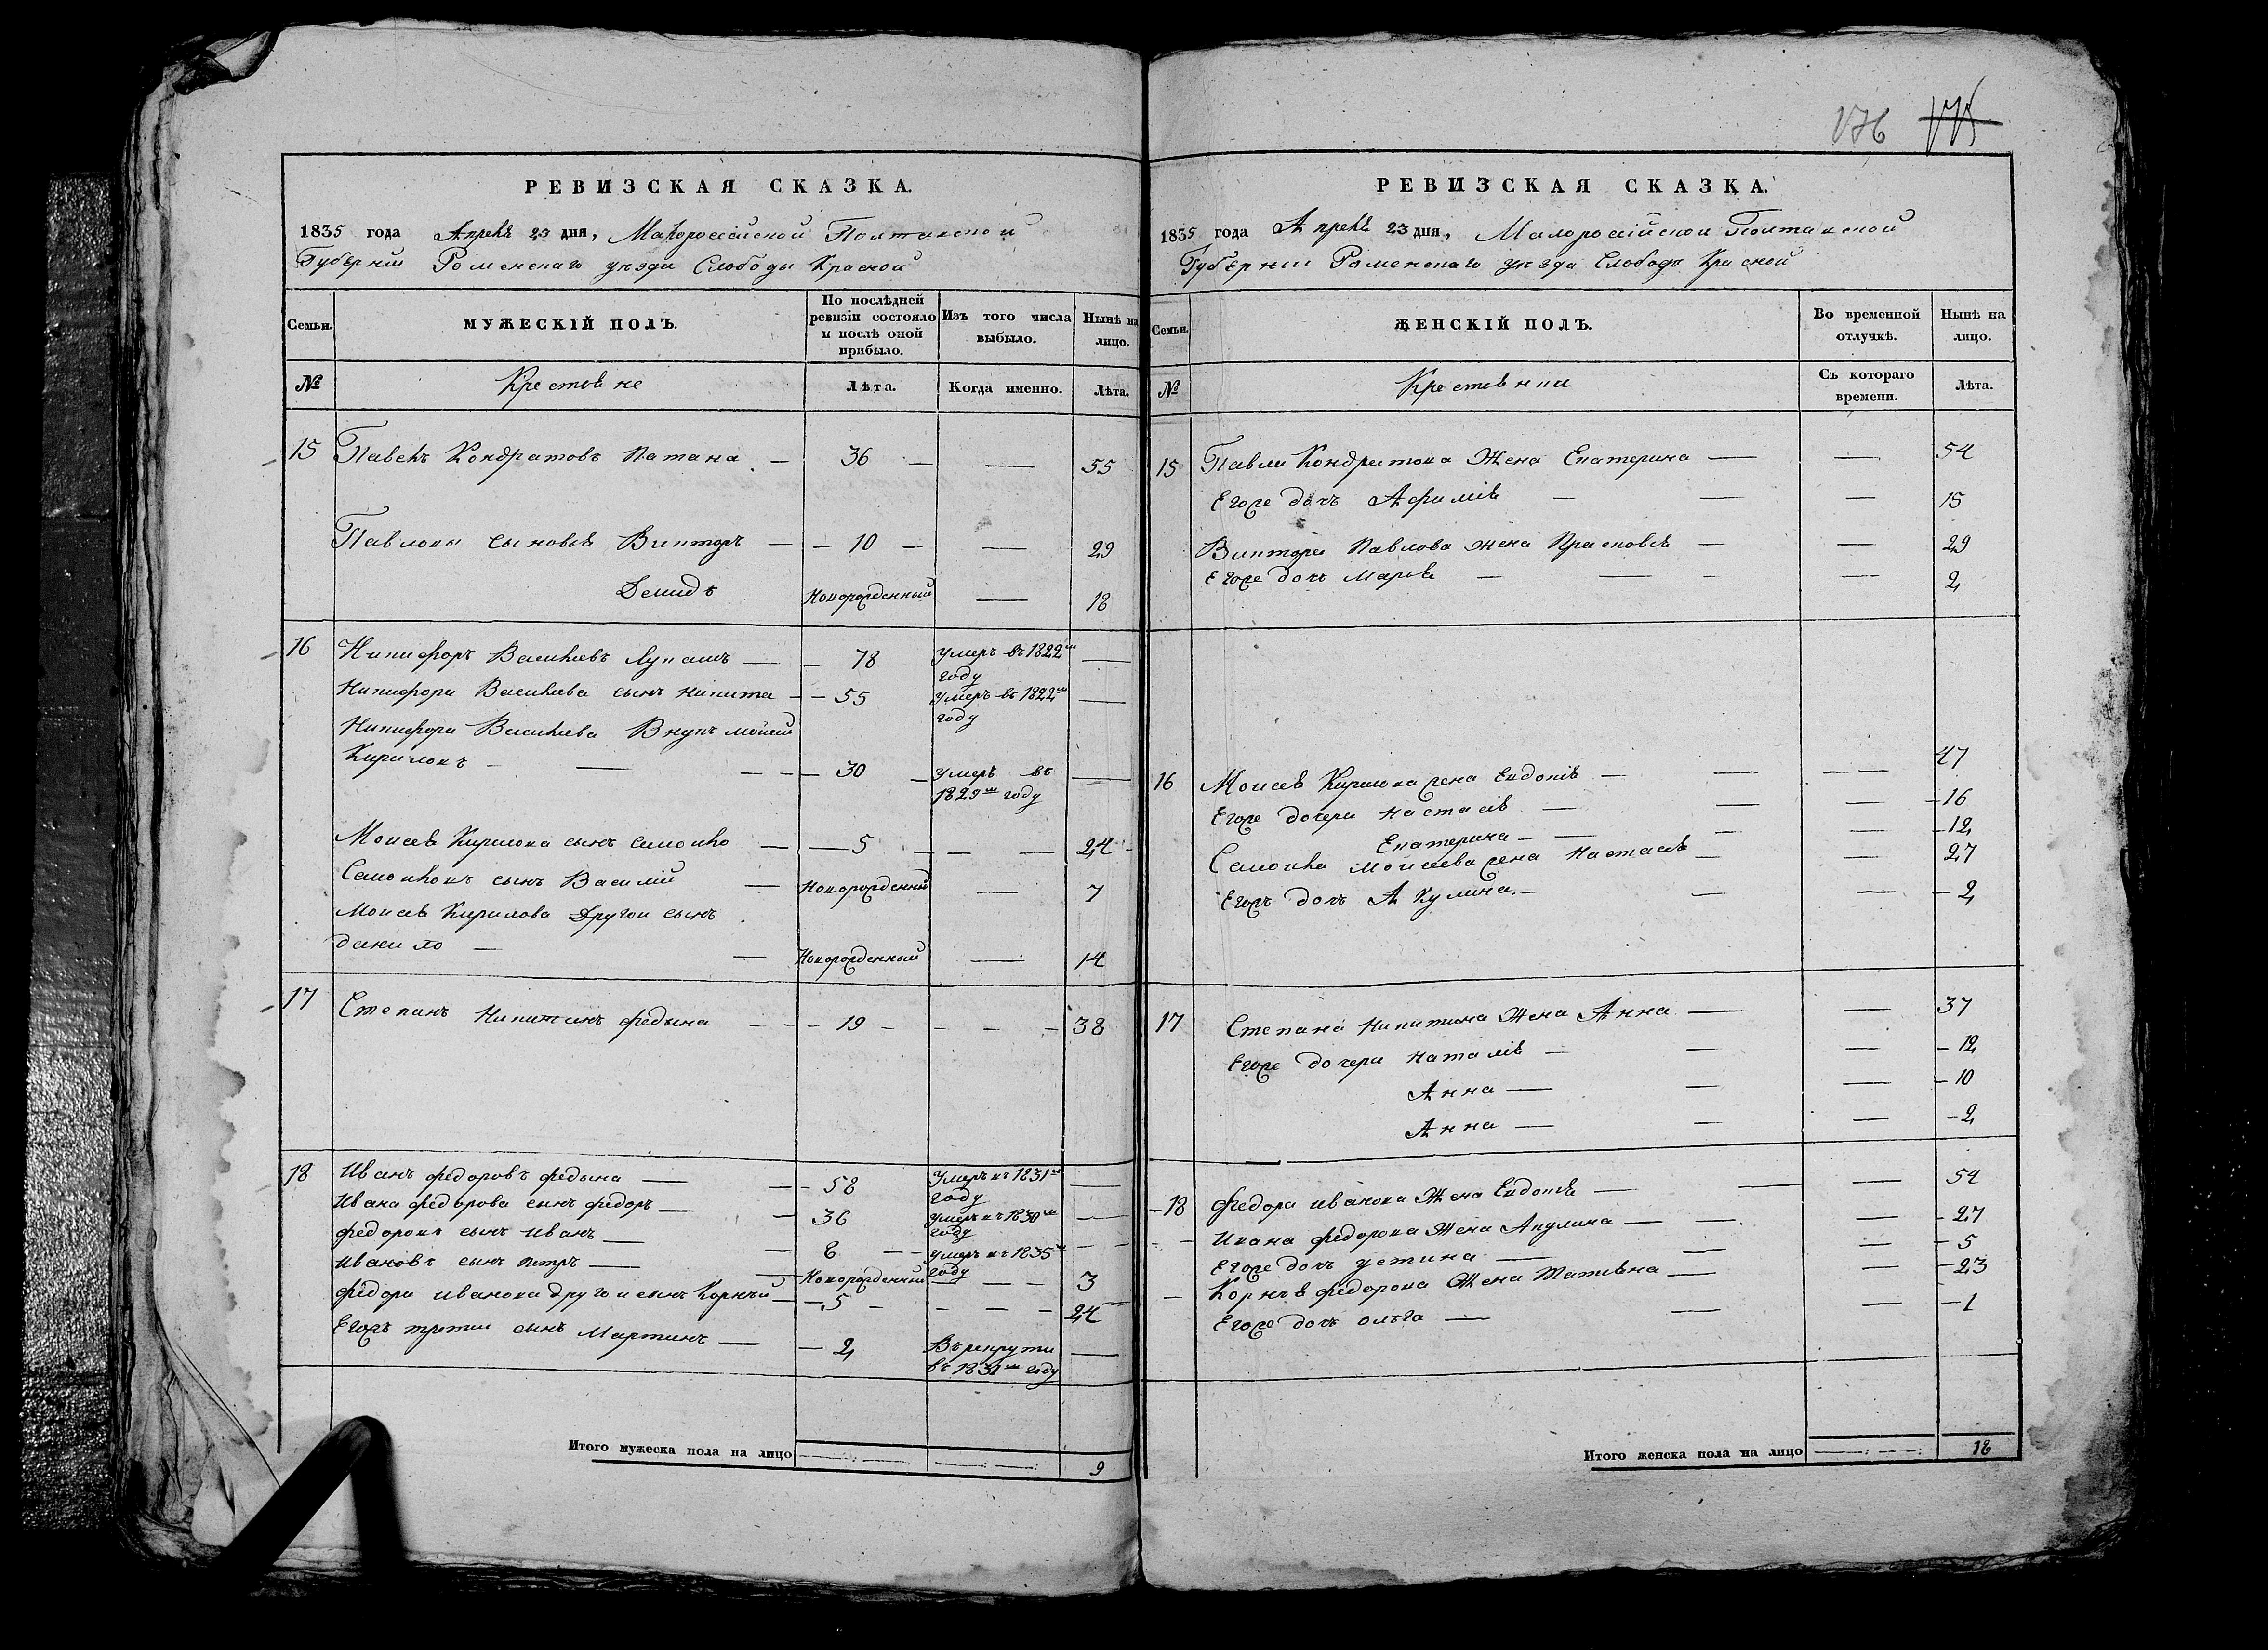 176 175
РЕВИЗСКАЯ СКАЗКА.
1835 года Апреля 23 дня, Малороссійской Полтавской
Губерніи Роменского уезда Слободы Красной
Семьи.
МУЖЕСКІЙ ПОЛЪ.
По послѣдней
ревизіи состояло
и послѣ оной
прибыло.
Изъ того числа
выбыло.
Нынѣ на
лицо.
№
Крестьяне
Лѣта.
Когда именно.
Лѣта.
15 Павелъ Кондратовъ — 36 — — 55
Павловы сыновья Викторъ — — 10 — — 29
Демидъ Новорожденный — 18
16 Никифоръ Васильевъ Лупашъ — — 78 умеръ въ 1822м —
году
Никифора Васильева сынъ Никита — — 55 умеръ въ 1822м —
году
Никифора Васильева Внукъ Мойсей
Кириловъ — — — — 30 — умеръ въ —
1829м году
Моисея Кирилова сынъ Самойло — — 5 — — — 24
Самойловъ сынъ Василій — Новорожденній — 7
Моисея Кирилова Другои сынъ
данило — — Новорожденный — 14
17 Степанъ Никитинъ федына — — 19 — — — — 38
18 Иванъ федоровъ федына — — 58 Умеръ въ 1831м —
году
Ивана федорова сынъ федоръ — — 36 умеръ въ 1830м —
году
федоровъ сынъ иванъ — — 6 — — умеръ въ 1835м — —
году
ивановъ сынъ петръ — — Новорожденный — — 3
федора иванова другои сынъ Корнѣй — — 5 — — — — 24
Егожъ третии сынъ Мартинъ — — 2 Въ рекруты —
въ 1831м году
Итого мужеска пола на лицо 9
РЕВИЗСКАЯ СКАЗКА.
1835 года Апреля 23 дня, Малороссійской Полтавской
Губерніи Роменского уезда Слободы Красной
Семьи.
ЖЕНСКІЙ ПОЛЪ.
Во временной
отлучкѣ.
Нынѣ на
лицо.
№
Крестьянки
Съ котораго
времени.
Лѣта.
15 Павла Кондратова Жена Екатерина — — 54
Егоже дочъ Афимія — — — 15
Виктора Павлова жена — — 29
Егоже дочъ Марья — — — — 2
16 Моисея Кирилова жена Евдокія — — — — 47
Егоже дочери Настасія — — — — 16
Екатерина — — — — — 12
Самойла Моисеева жена Настасія — — 27
Егожъ дочъ Акулина — — — — 2
17 Степана Никитина Жена Анна — — 37
Егоже дочери Наталія — — — — 12
Анна — — — — 10
Анна — — — — 2
18 Федора иванова Жена Евдокія — — — 54
Ивана федорова Жена Акулина — — — — 27
Егоже дочъ устина — — — — 5
Корнѣя федорова Жена Татіяна — — — 23
Егоже дочъ олѣга — — — — 1
Итого женска пола на лицо 18